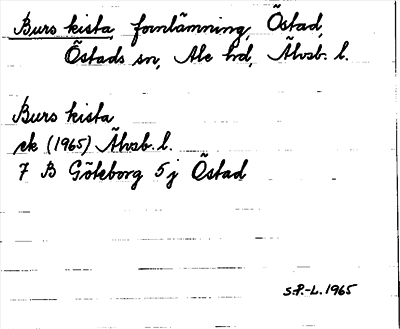 Burs kista, fornlämning, Östad,
Östads sn, Ale hd, Älvsb. l.
Burs kista
ek (1965) Älvsb. l.
7 B Göteborg 5 j Östad
S.P.-L. 1965